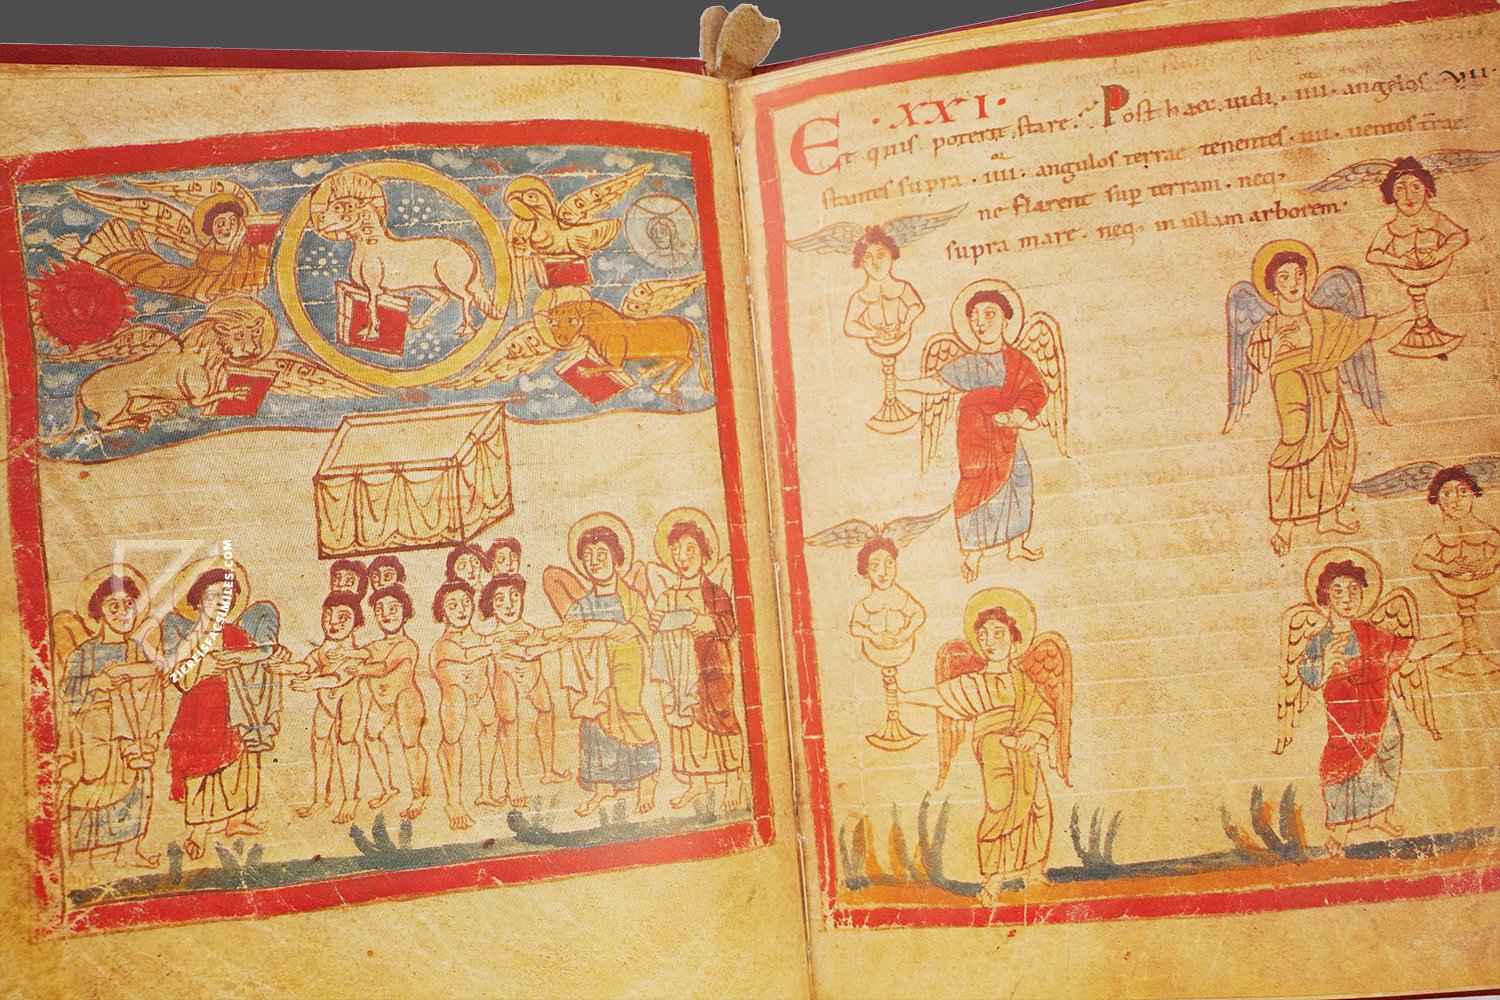 ZIEREISFACSIMILES.COM
· XXI ·
Et quis poterit stare. Post haec uidi · IIII · angelos
stantes supra · IIII · angulos terrae tenentes · IIII · uentos t̄rae
ne flarent sup̱ terram · neq;
supra mare · neq; in ullam arborem ·